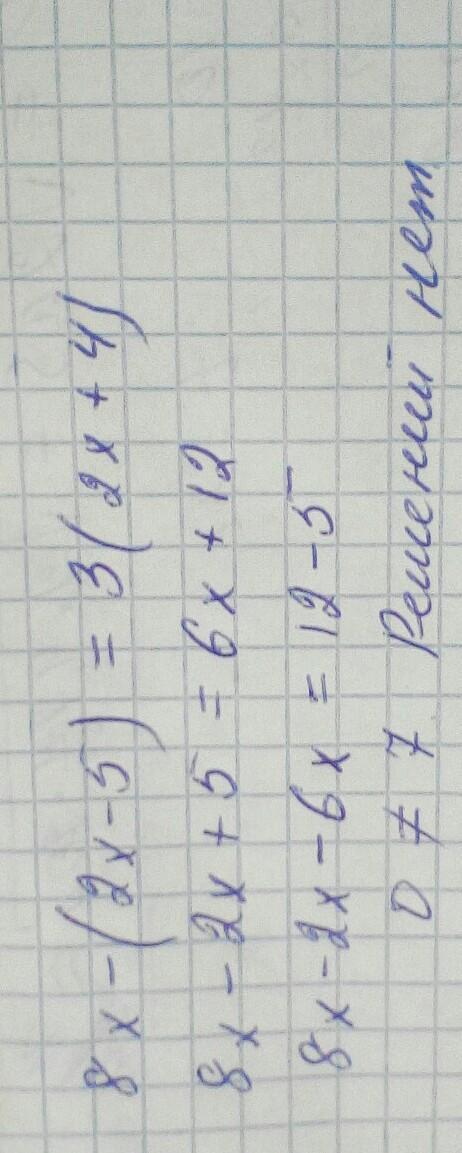 8x - (2x - 5) = 3(2x + 4)
8x - 2x + 5 = 6x + 12
8x - 2x - 6x = 12 - 5
0 ≠ 7 Решений нет